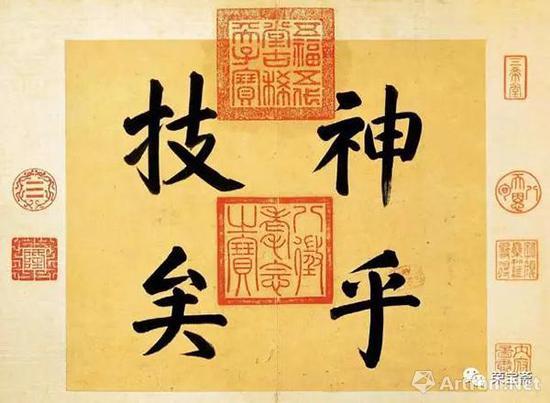 神乎
技矣
五福五代
堂古稀
天子寶
八徵
耄念
之寶
三希堂
三
荣宝斋
Artron.Net